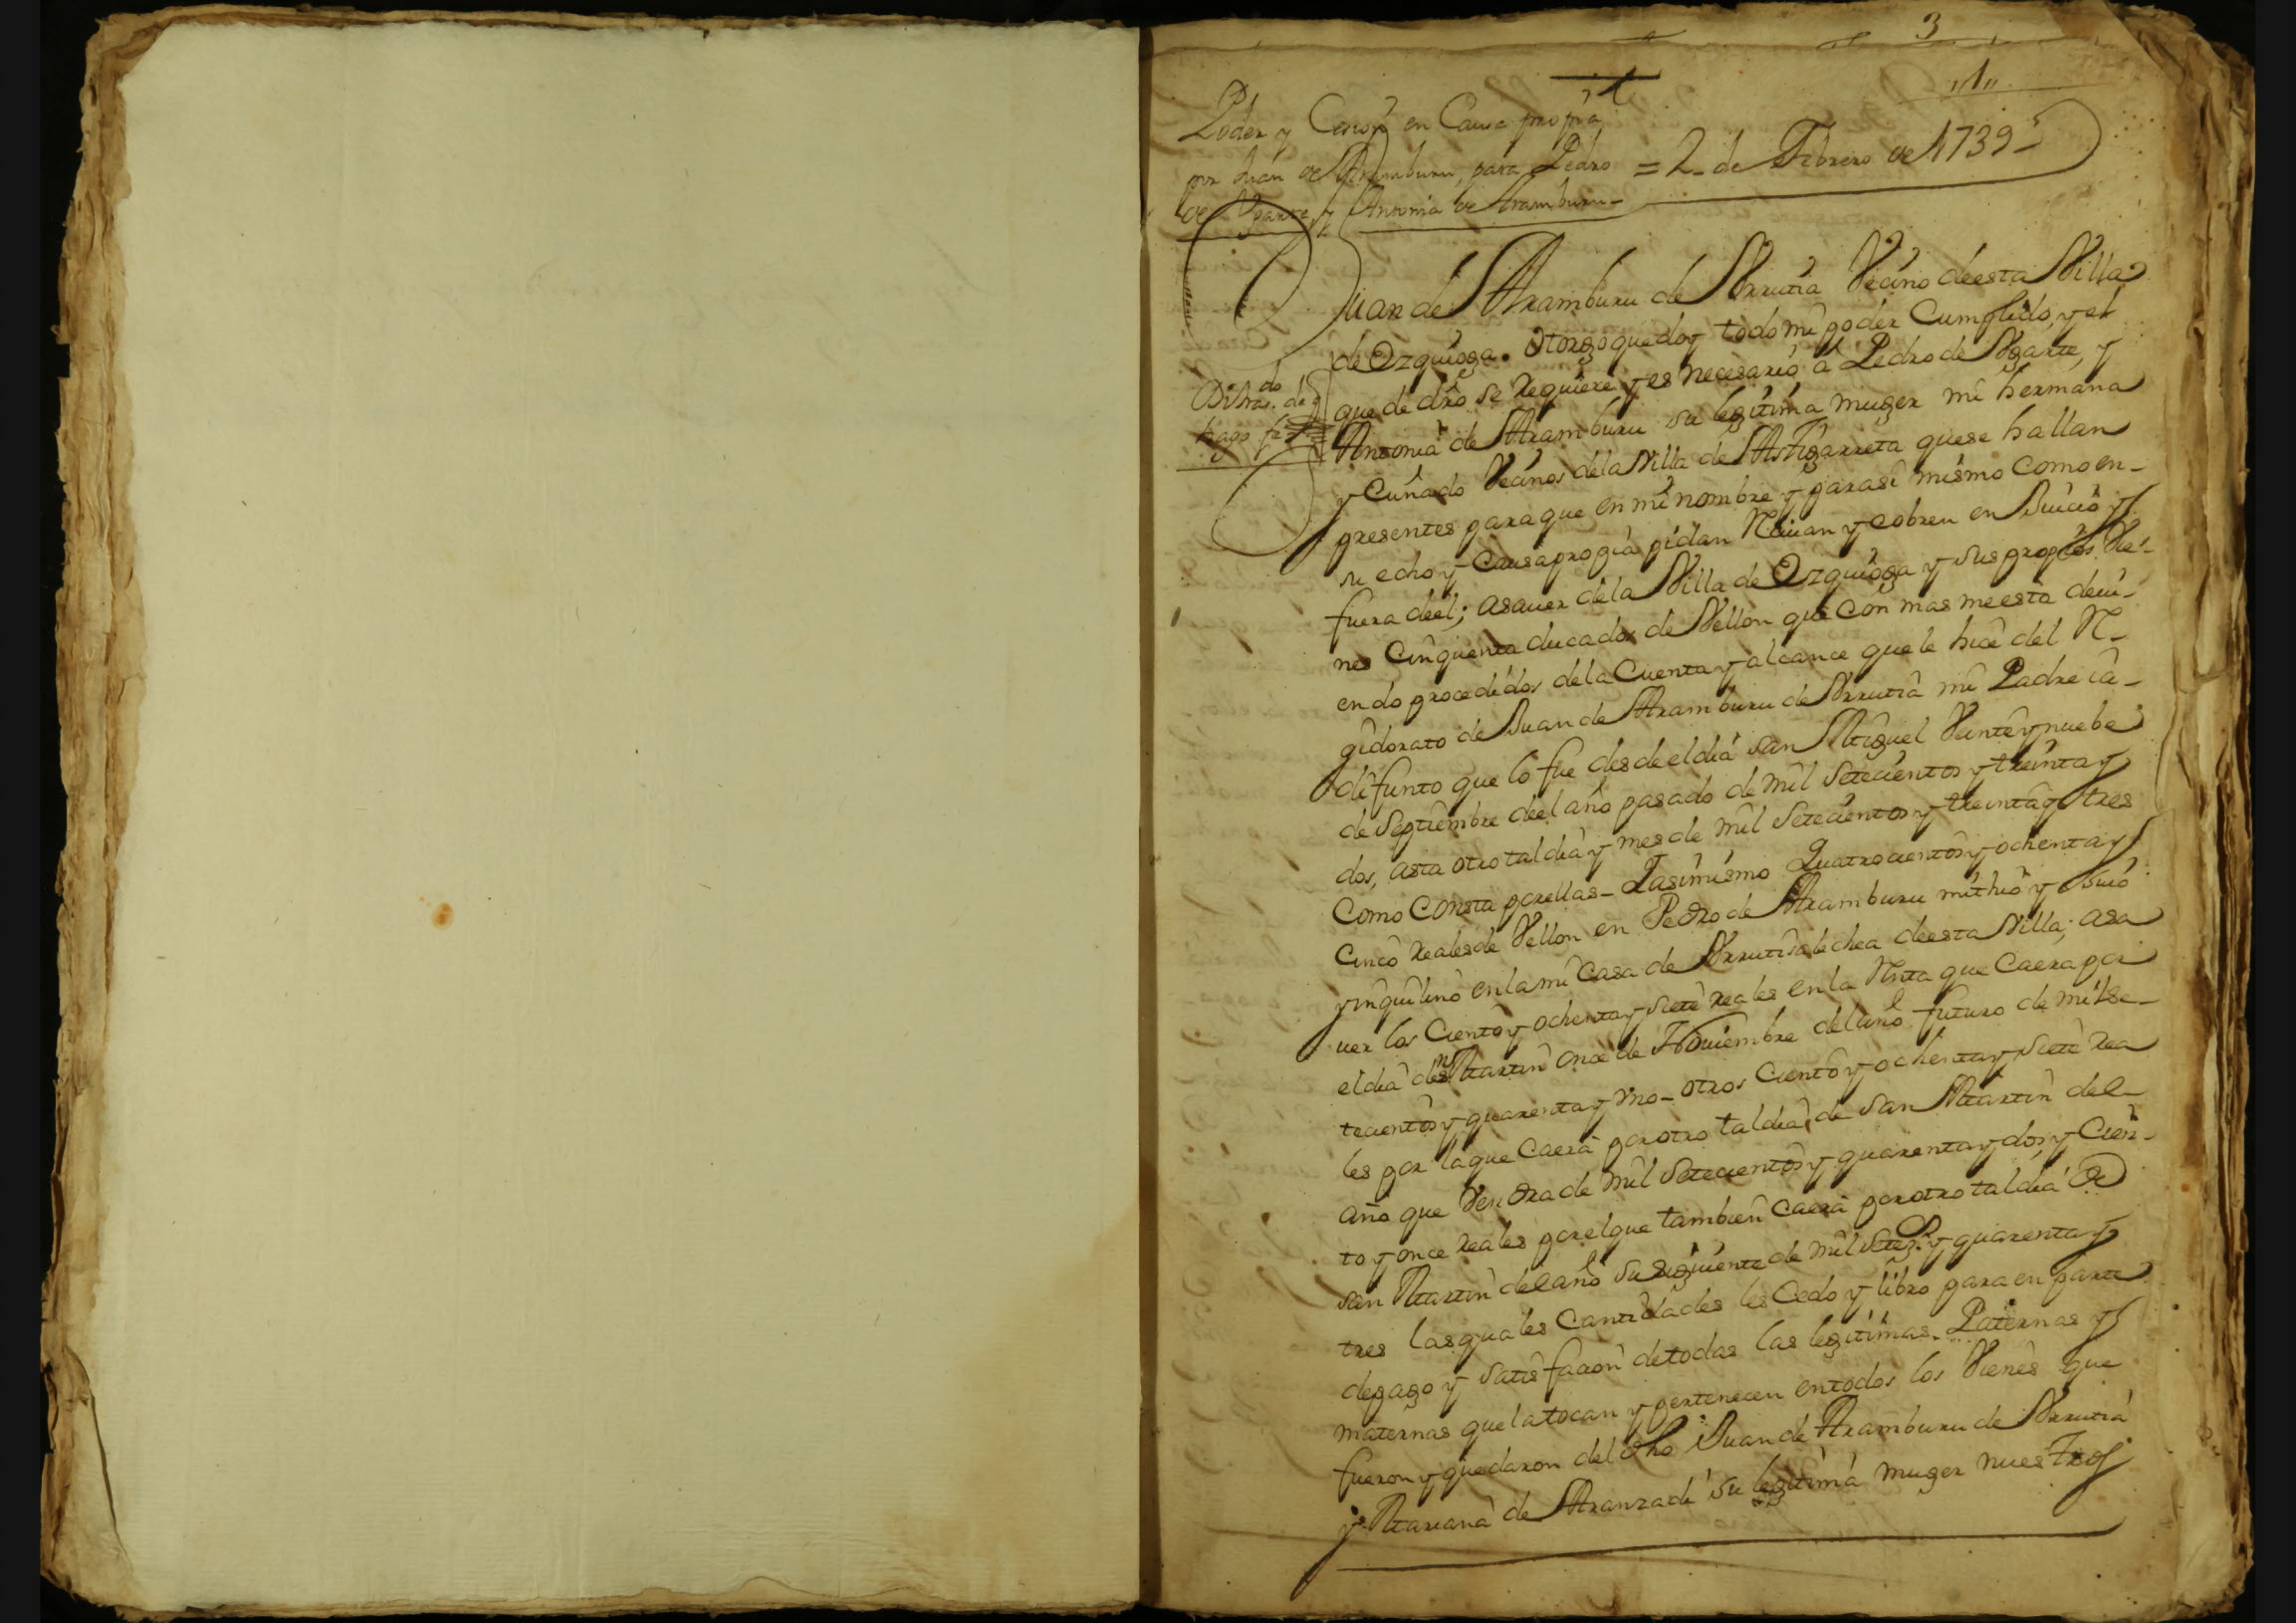 3
1
"1"
Poder y Cesion en Causa propia
por Juan de Aramburu, para Pedro
de Vgarte, y Antonia de Aramburu-
= 2 de Febrero de 1739-
Juan de Aramburu de Vrrutia Vecino deesta Villa
de Ozquioga. Otorgo quedoy todo mi poder Cumplido, y el
que de dro se requiere y es necesario a Pedro de Vgarte, y
Antonia de Aramburu su legitima muger mi hermana
y Cuñado Vecinos dela Villa de Astigarreta quese hallan
presentes para que en mi nombre y parasi mismo como en-
su echo y Causa propia pidan Reciuan y cobren en Juicio y
fuera deel; asauer dela Villa de Ozquioga y sus propios Vie-
nes Cinquenta ducados de Vellon que con mas meesta deui-
endo procedidos dela Cuenta y alcance que le hice del R-
gidorato de Juan de Aramburu de Vrrutia mi Padre ia-
difunto que lo fue desde el dia san Miguel Veinte y nuebe
de Septiembre deel año pasado de mil Setecientos y treinta y
dos, asta otro tal dia y mes de mil Setecientos y treinta y tres
Como Consta por ellas- Y asimismo Quatrocientos y ochenta y
Cinco reales de Vellon en Pedro de Aramburu mi thio y
ynquilino en la mi Casa de Vrrutia lechea deesta Villa; asa
uer los Ciento y ochenta y siete reales en la Renta que Caera por
el dia de Sn Martin once de Nouiembre del año futuro de mil se-
tecientos y quarenta y vno- otros Ciento y ochenta y siete rea
les por la que Caerà por otro tal dia de San Martin del-
año que Vendra de mil Setecientos y quarenta y dos, y Cien-
to y once reales por el que tambien Caerà por otro tal dia de
san Martin del año subsiguiente de mil Setez.s y quarenta y
tres las quales Cantidades les Cedo y libro para en parte
de pago y satisfacion de todas las legitimas Paternas y
maternas que la tocan y pertenecen en todos los Vienes que
fueron y quedaron del dho Juan de Aramburu de Vrrutia
y Mariana de Aranzadi su legitima muger nuestros